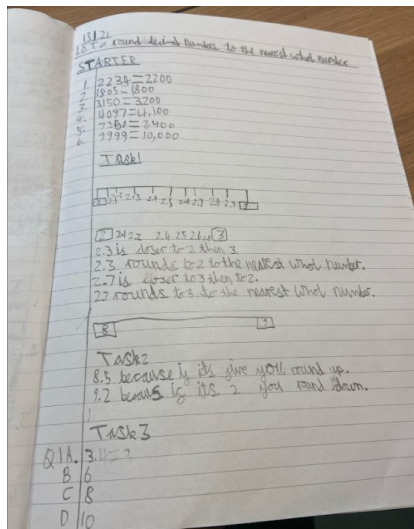 L.O To round decimal numbers to the nearest whol number.
STARTER
1. 2234=2200
2. 1805-1800
3. 3150=3200
4. 4097=4,100
5. =2,400
6. 9999=10,000
TASK1
2 3
2.3 is closer to 2 then 3
2.3 rounds to 2 to the nearest whol number.
2.7 is closer to 3 then to 2.
2.7 rounds to 3 to the nearest whol number.
8
TASK2
8.5 because if its five you'll round up.
9.2 becaus if its 2 you round down.
TASK3
Q1A. 3.
B 6
C 8
D 10